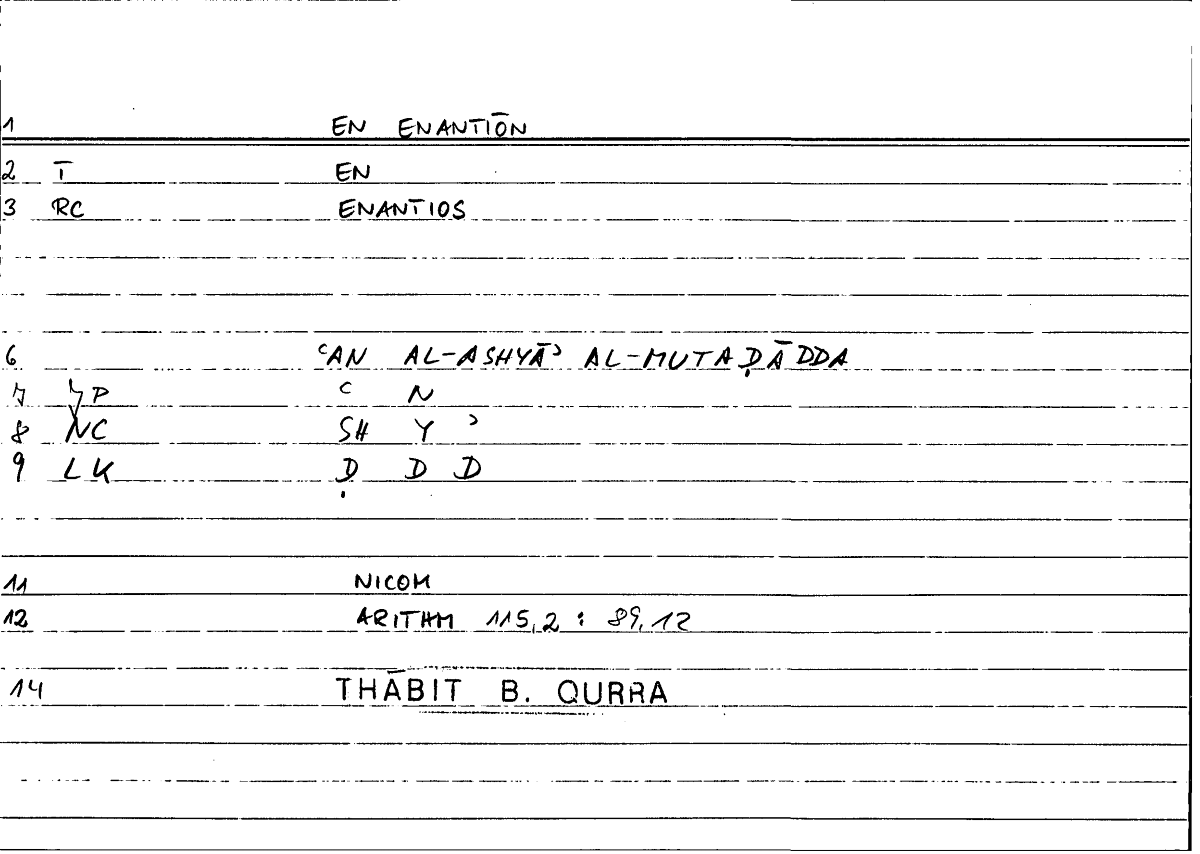 1 EN ENANTIŌN
2 T EN
3 RC ENANTIOS
6 ʿAN AL-ASHYĀʾ AL-MUTAḌĀDDA
7 P ʿ N
8 NC SH Y ʾ
9 LK Ḍ D D
11 NICOM
12 ARITHM 115,2 : 89,12
14 THĀBIT B. QURRA